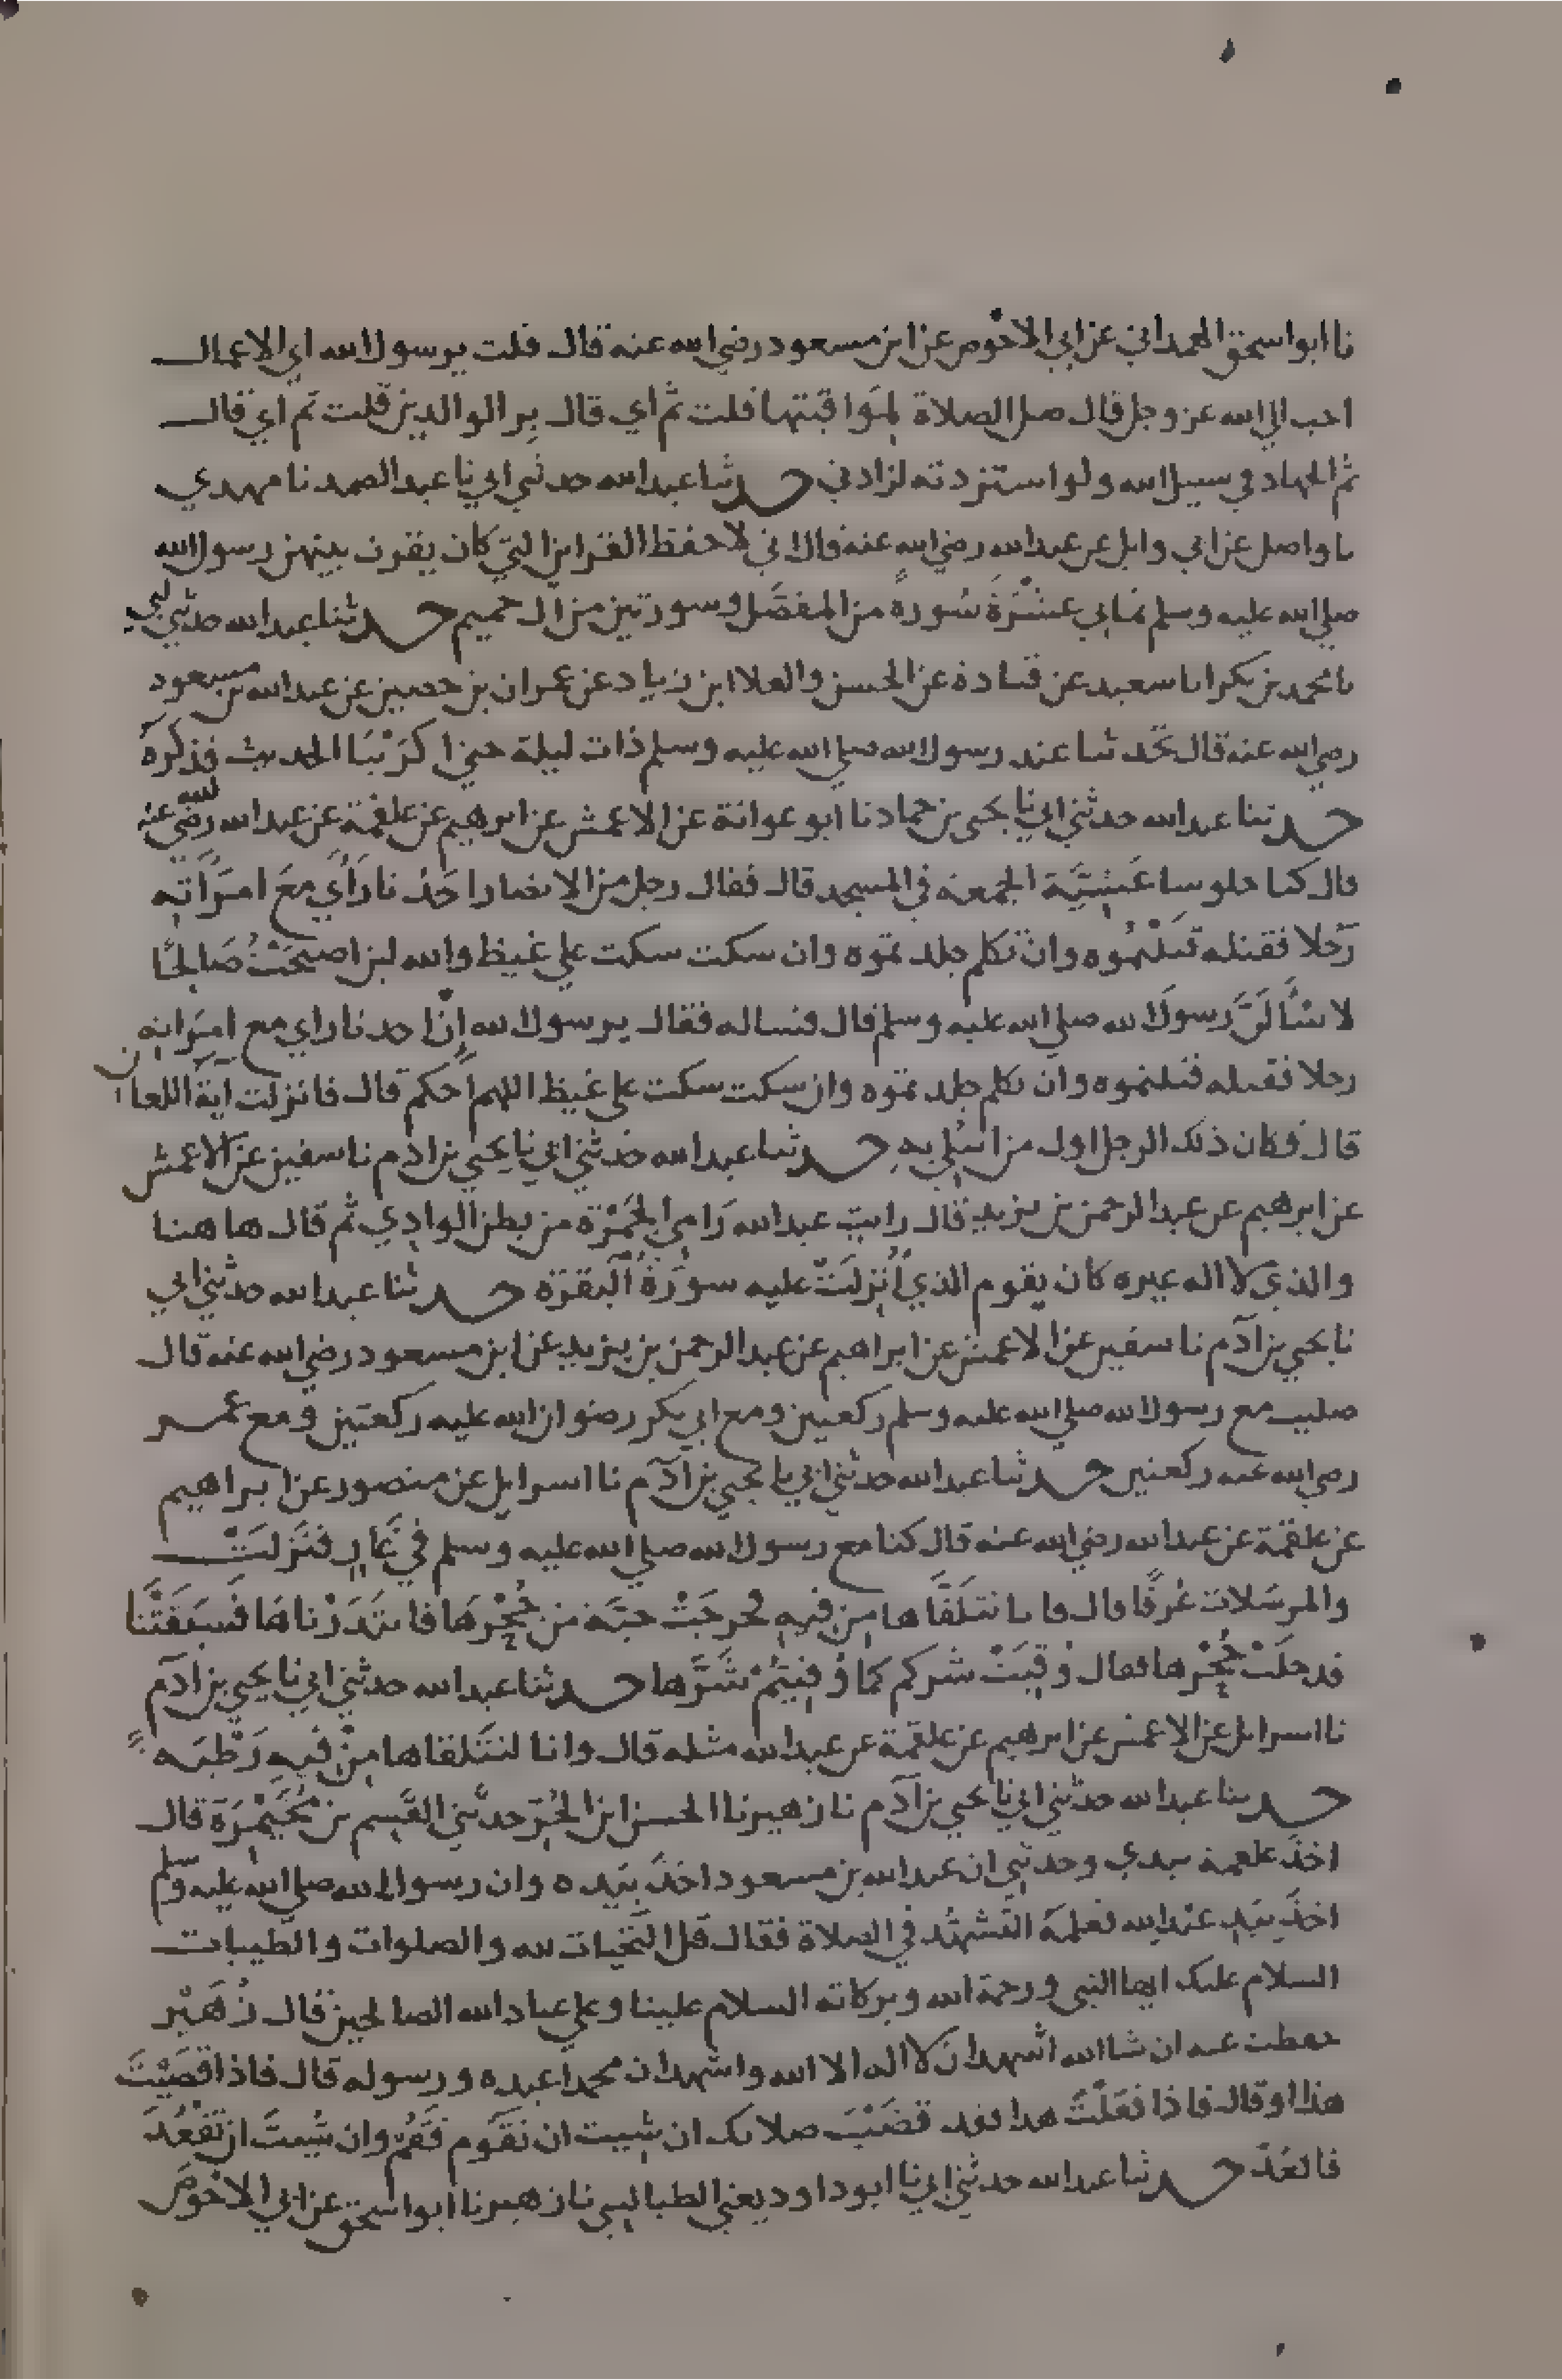 نا ابو اسحق الهمداني عن ابي الاحوص عن ابن مسعود رضي الله عنه قال قلت يرسول الله اي الاعمال
احب الي الله عز وجل قال صل الصلاة لمواقيتها قلت ثم اي قال بر الوالدين قلت ثم اي قال
ثم الجهاد في سبيل الله ولو استزدته لزادني حدثنا عبد الله حدثني ابي نا عبد الصمد نا مهدي
نا واصل عن ابي وايل عن عبد الله رضي الله عنه قال اني لاحفظ القراين التي كان يقرن بينهن رسول الله
صلي الله عليه وسلم ثماني عشرة سورة من المفصل وسورتين من ال حميم حدثنا عبد الله حدثني ابي
نا محمد بن بكر انا سعيد عن قتادة عن الحسن والعلا ابن زياد عن عمران بن حصين عن عبد الله بن مسعود
رضي الله عنه قال تحدثنا عند رسول الله صلي الله عليه وسلم ذات ليلة حتي اكرينا الحديث فذكره
حدثنا عبد الله حدثني ابي نا يحيي بن حماد نا ابو عوانة عن الاعمش عن ابرهيم عن علقمة عن عبد الله رضي الله عنه
قال كنا جلوسا عشية الجمعة في المسجد قال فقال رجل من الانصار احدنا راي مع امراته
رجلا فقتله قتلتموه وان تكلم جلدتموه وان سكت سكت علي غيظ والله لين اصبحت صالحا
لاسالن رسول الله صلي الله عليه وسلم قال فساله فقال يرسول الله ان احدنا راي مع امراته
رجلا فقتله قتلتموه وان تكلم جلدتموه وان سكت سكت علي غيظ اللهم احكم قال فانزلت آية اللعان
قال فكان ذلك الرجل اول من ابتلي به حدثنا عبد الله حدثني ابي نا يحيي بن ادم نا سفين عن الاعمش
عن ابرهيم عن عبد الرحمن بن يزيد قال رايت عبد الله رامي الجمرة من بطن الوادي ثم قال هاهنا
والذي لا اله غيره كان يقوم الذي انزلت عليه سورة البقرة حدثنا عبد الله حدثني ابي
نا يحيي بن آدم نا سفين عن الاعمش عن ابراهيم عن عبد الرحمن بن يزيد عن ابن مسعود رضي الله عنه قال
صليت مع رسول الله صلي الله عليه وسلم ركعتين ومع ابي بكر رضوان الله عليه ركعتين ومع عمر
رضي الله عنه ركعتين حدثنا عبد الله حدثني ابي نا يحيي بن آدم نا اسرايل عن منصور عن ابراهيم
عن علقمة عن عبد الله رضي الله عنه قال كنا مع رسول الله صلي الله عليه وسلم في غار فنزلت
والمرسلات عرفا قال فانا نتلقاها من فيه فخرجت حية من جحرها فابتدرناها فسبقتنا
فدخلت جحرها فقال وقيت شركم كما وقيتم شرها حدثنا عبد الله حدثني ابي نا يحيي بن آدم
نا اسرايل عن الاعمش عن ابرهيم عن علقمة عن عبد الله مثله قال وانا لنتلقاها من فيه رطبه
حدثنا عبد الله حدثني ابي نا يحيي بن آدم نا زهير نا الحسن ابن الحر حدثني القسم بن مخيمرة قال
اخذ علقمة بيدي وحدثني ان عبد الله بن مسعود اخذ بيده وان رسول الله صلي الله عليه وسلم
اخذ بيد عبد الله فعلمه التشهد في الصلاة فقال قل التحيات لله والصلوات والطيبات
السلام عليك ايها النبي ورحمة الله وبركاته السلام علينا وعلي عباد الله الصالحين قال زهير
حفظت عنه ان شا الله اشهد ان لا اله الا الله واشهد ان محمدا عبده ورسوله قال فاذا قضيت
هذا او قال فاذا فعلت هذا فقد قضيت صلاتك ان شيت ان تقوم فقم وان شيت ان تقعد
فاقعد حدثنا عبد الله حدثني ابي نا ابو داود يعني الطيالسي نا زهير نا ابو اسحق عن ابي الاحوص